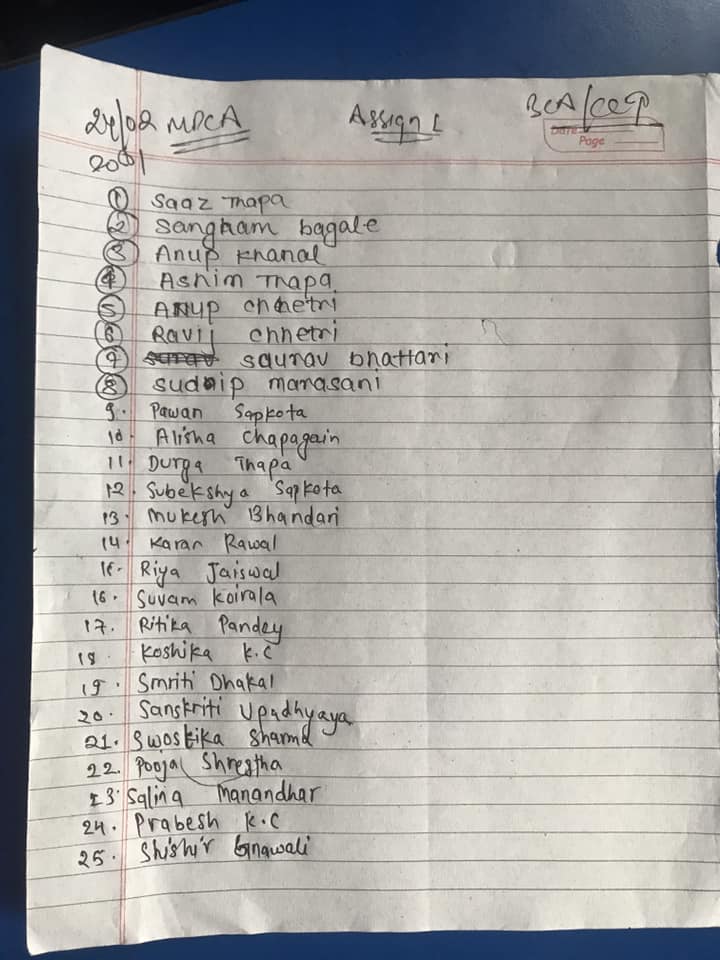 24/02 MDCA Assign 1 BCA/CCT
2001
Date
Page
① Saaz Thapa
② Sangham bagale
③ Anup khanal
④ Ashim Thapa
⑤ Anup chhetri
⑥ Ravij chhetri
⑦ saurav bhattari
⑧ sudnip marasani
9. Pawan Sapkota
10. Alisha Chapagain
11. Durga Thapa
12. Subekshya Sapkota
13. Mukesh Bhandari
14. Karan Rawal
15. Riya Jaiswal
16. Suvam Koirala
17. Ritika Pandey
18. Koshika K.C
19. Smriti Dhakal
20. Sanskriti Upadhyaya
21. Swostika Sharma
22. Pooja Shrestha
23. Salina Manandhar
24. Prabesh K.C
25. Shishir Gnawali